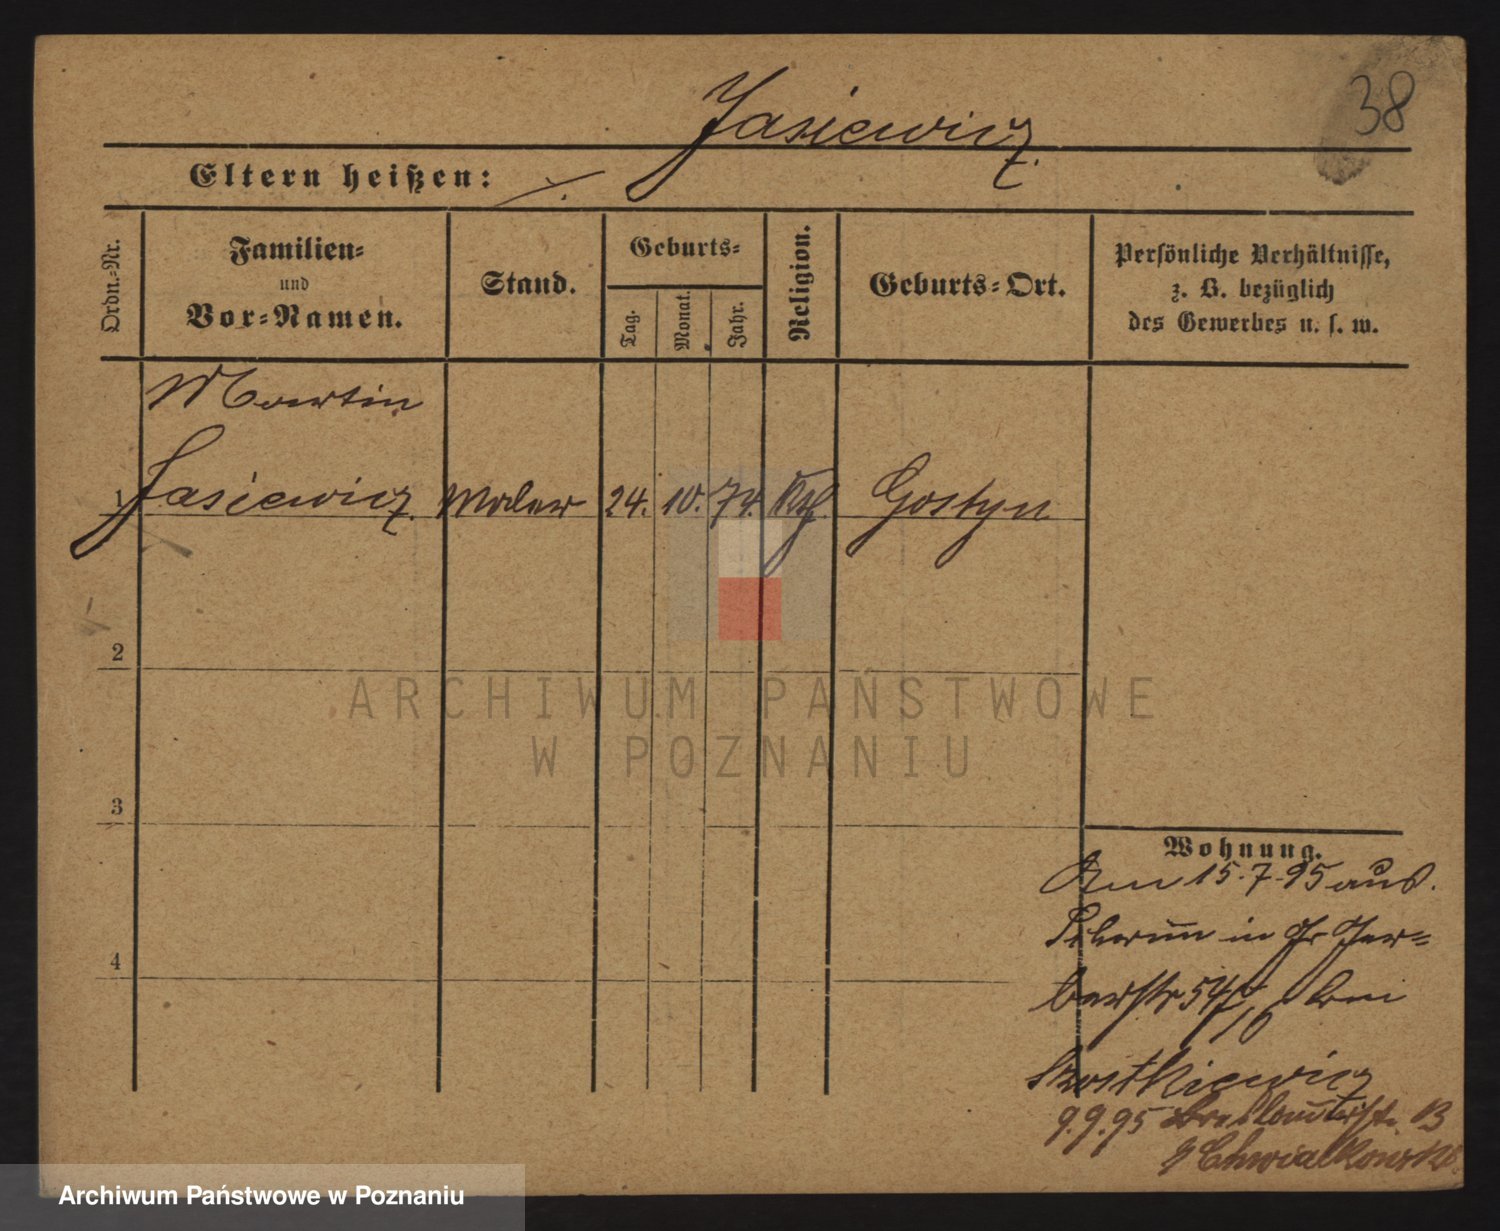 38
Jasiewicz.
Eltern heißen: ./.
Ordn.-Nr.
Familien-
und
Vor-Namen.
Stand.
Geburts-
Tag.
Monat.
Jahr.
Religion.
Geburts-Ort.
Persönliche Verhältnisse,
z. B. bezüglich
des Gewerbes u. s. w.
Martin
1 Jasiewicz. Maler 24. 10. 74. Kth Gostyn
2
3
4
Wohnung.
Am 15.7.95 aus
in Gr Ger-
berstr 54 bei
Szostkiewicz
9.9.95 Breslauerstr. 13
Chwialkowski
ARCHIWUM PAŃSTWOWE
W POZNANIU
Archiwum Państwowe w Poznaniu